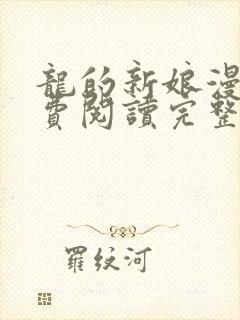 龍的新娘漫
費閱讀完整
羅紋河